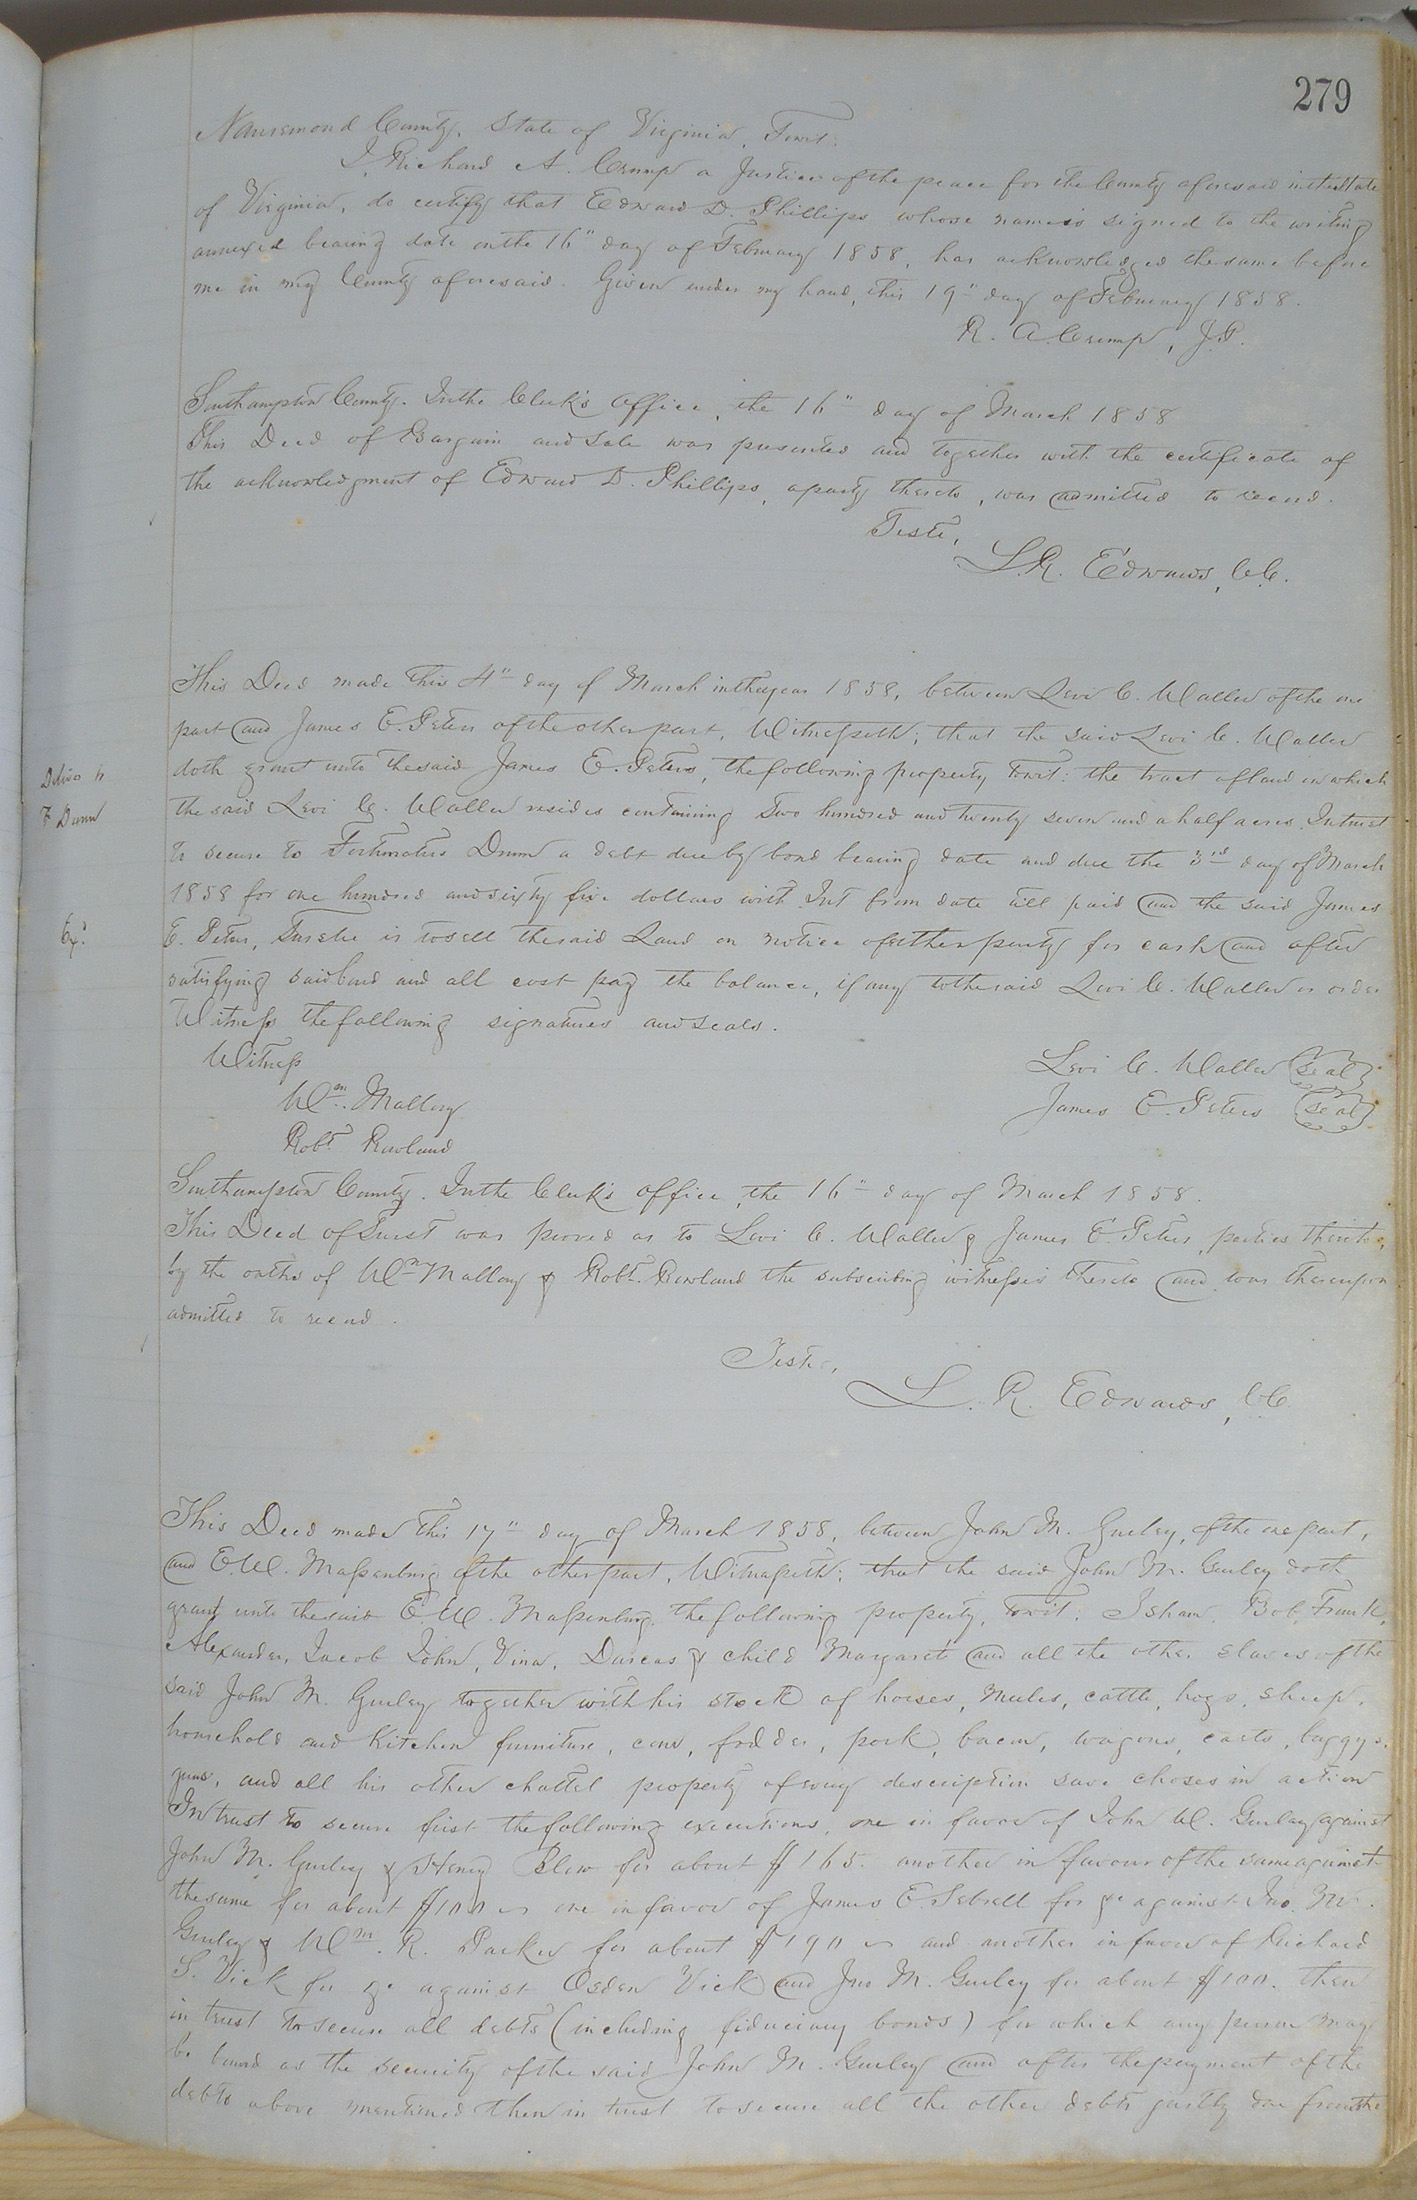 279
Nansemond County, State of Virginia, Towit:
I, Richard A. Crump a Justice of the peace for the County aforesaid in the State
of Virginia, do certify that Edward D. Phillips whose name is signed to the writing
annexed bearing date on the 16" day of February 1858, has acknowledged the same before
me in my County aforesaid. Given under my hand, this 19" day of February 1858.
R. A. Crump, J.P.
Southampton County. In the Clerk's Office, the 16" day of March 1858
This Deed of Bargain and Sale was presented and together with the certificate of
the acknowledgment of Edward D. Phillips, a party thereto, was admitted to record.
Teste,
L.R. Edwards, CC.
This Deed made this 4" day of March in the year 1858, between Levi C. Waller of the one
part and James E. Peters of the other part, Witnesseth; that the said Levi C. Waller
doth grant unto the said James E. Peters, the following property towit: the tract of land on which
Deliv'd to
F Dunn
the said Levi C. Waller resides containing Two hundred and twenty seven and a half acres. In trust
to secure to Fortunatus Dunn a debt due by bond bearing date and due the 3rd day of March
1858 for one hundred and sixty five dollars with Int from date till paid and the said James
Ex.d
E. Peters, Trustee is to sell the said Land on notice of either party for cash and after
satisfying said bond and all cost pay the balance, if any to the said Levi C. Waller or order
Witness the following signatures and seals.
Witness
Levi C. Waller (seal)
Wm. Mallory
James E. Peters (seal)
Robt. Rowland
Southampton County. In the Clerk's office, the 16" day of March 1858.
This Deed of Trust was proved as to Levi C. Waller & James E Peters, parties thereto,
by the oaths of Wm Mallory & Robt. Rowland the subscribing witnesses thereto and was thereupon
admitted to record.
Teste,
L. R. Edwards, CC.
This Deed made this 17" day of March 1858, between John M. Gurley, of the one part,
and E.W. Massenburg of the other part, Witnesseth; that the said John M. Gurley doth
grant unto the said E.W. Massenburg the following property, towit: Isham, Bob, Frank,
Alexander, Jacob John, Vina, Darcas & child Margaret and all the other slaves of the
said John M. Gurley together with his stock of horses, mules, cattle, hogs, sheep,
household and kitchen furniture, corn, fodder, pork, bacon, wagons, carts, buggys,
guns, and all his other chattel property of every description save choses in action
In trust to secure first the following executions, one in favor of John W. Gurley against
John M. Gurley & Henry Blow for about $165. another in favour of the same against
the same for about $100 one in favor of James E. Sebrell for &c against Jno. M.
Gurley & Wm. R. Parker for about $190 and another in favor of Richard
S. Vick for &c against Osden Vick and Jno M. Gurley for about $100. then
in trust to secure all debts (including fiduciary bonds) for which any person may
be bound as the security of the said John M. Gurley and after the payment of the
debts above mentioned then in trust to secure all the other debts justly due from the